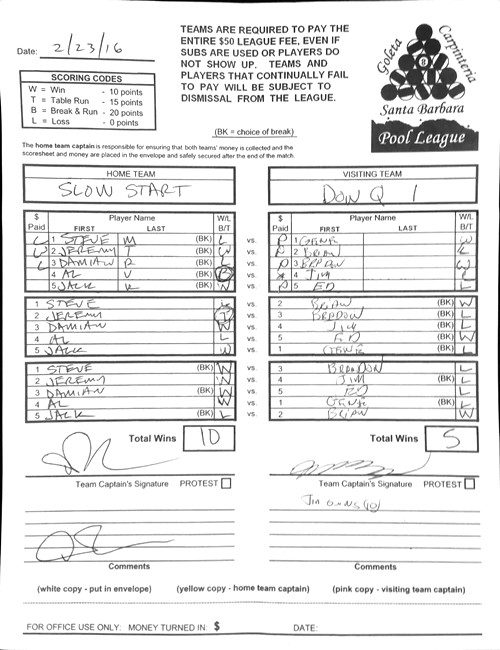 Date: 2/23/16
TEAMS ARE REQUIRED TO PAY THE
ENTIRE $50 LEAGUE FEE, EVEN IF
SUBS ARE USED OR PLAYERS DO
NOT SHOW UP. TEAMS AND
PLAYERS THAT CONTINUALLY FAIL
TO PAY WILL BE SUBJECT TO
DISMISSAL FROM THE LEAGUE.
(BK = choice of break)
SCORING CODES
W = Win - 10 points
T = Table Run - 15 points
B = Break & Run - 20 points
L = Loss - 0 points
Goleta
Carpinteria
8
Santa Barbara
Pool League
The home team captain is responsible for ensuring that both teams' money is collected and the
scoresheet and money are placed in the envelope and safely secured after the end of the match.
HOME TEAM
SLOW START
VISITING TEAM
DON Q 1
$ Paid Player Name FIRST LAST W/L B/T
$ Paid Player Name FIRST LAST W/L B/T
1 STEVE M (BK) L vs. P 1 GENE W
2 JEREMY T (BK) W vs. P 2 BRIAN L
3 DAMIAN R (BK) L vs. P 3 W
4 AL V (BK) B vs. 4 JIM L
5 JACK R (BK) vs. P 5 ED L
1 STEVE L vs. 2 BRIAN (BK) W
2 JEREMY T vs. 3 (BK) L
3 DAMIAN W vs. 4 JIM (BK) L
4 AL L vs. 5 ED (BK) W
5 JACK W vs. 1 GENE (BK) L
1 STEVE (BK) W vs. 3 BRANDON L
2 JEREMY W vs. 4 JIM (BK) L
3 DAMIAN (BK) W vs. 5 ED L
4 AL W vs. 1 GENE (BK) L
5 JACK (BK) L vs. 2 BRIAN W
Total Wins 10
Total Wins 5
Team Captain's Signature PROTEST
Team Captain's Signature PROTEST
Comments
Comments
(white copy - put in envelope) (yellow copy - home team captain) (pink copy - visiting team captain)
FOR OFFICE USE ONLY: MONEY TURNED IN: $ DATE: